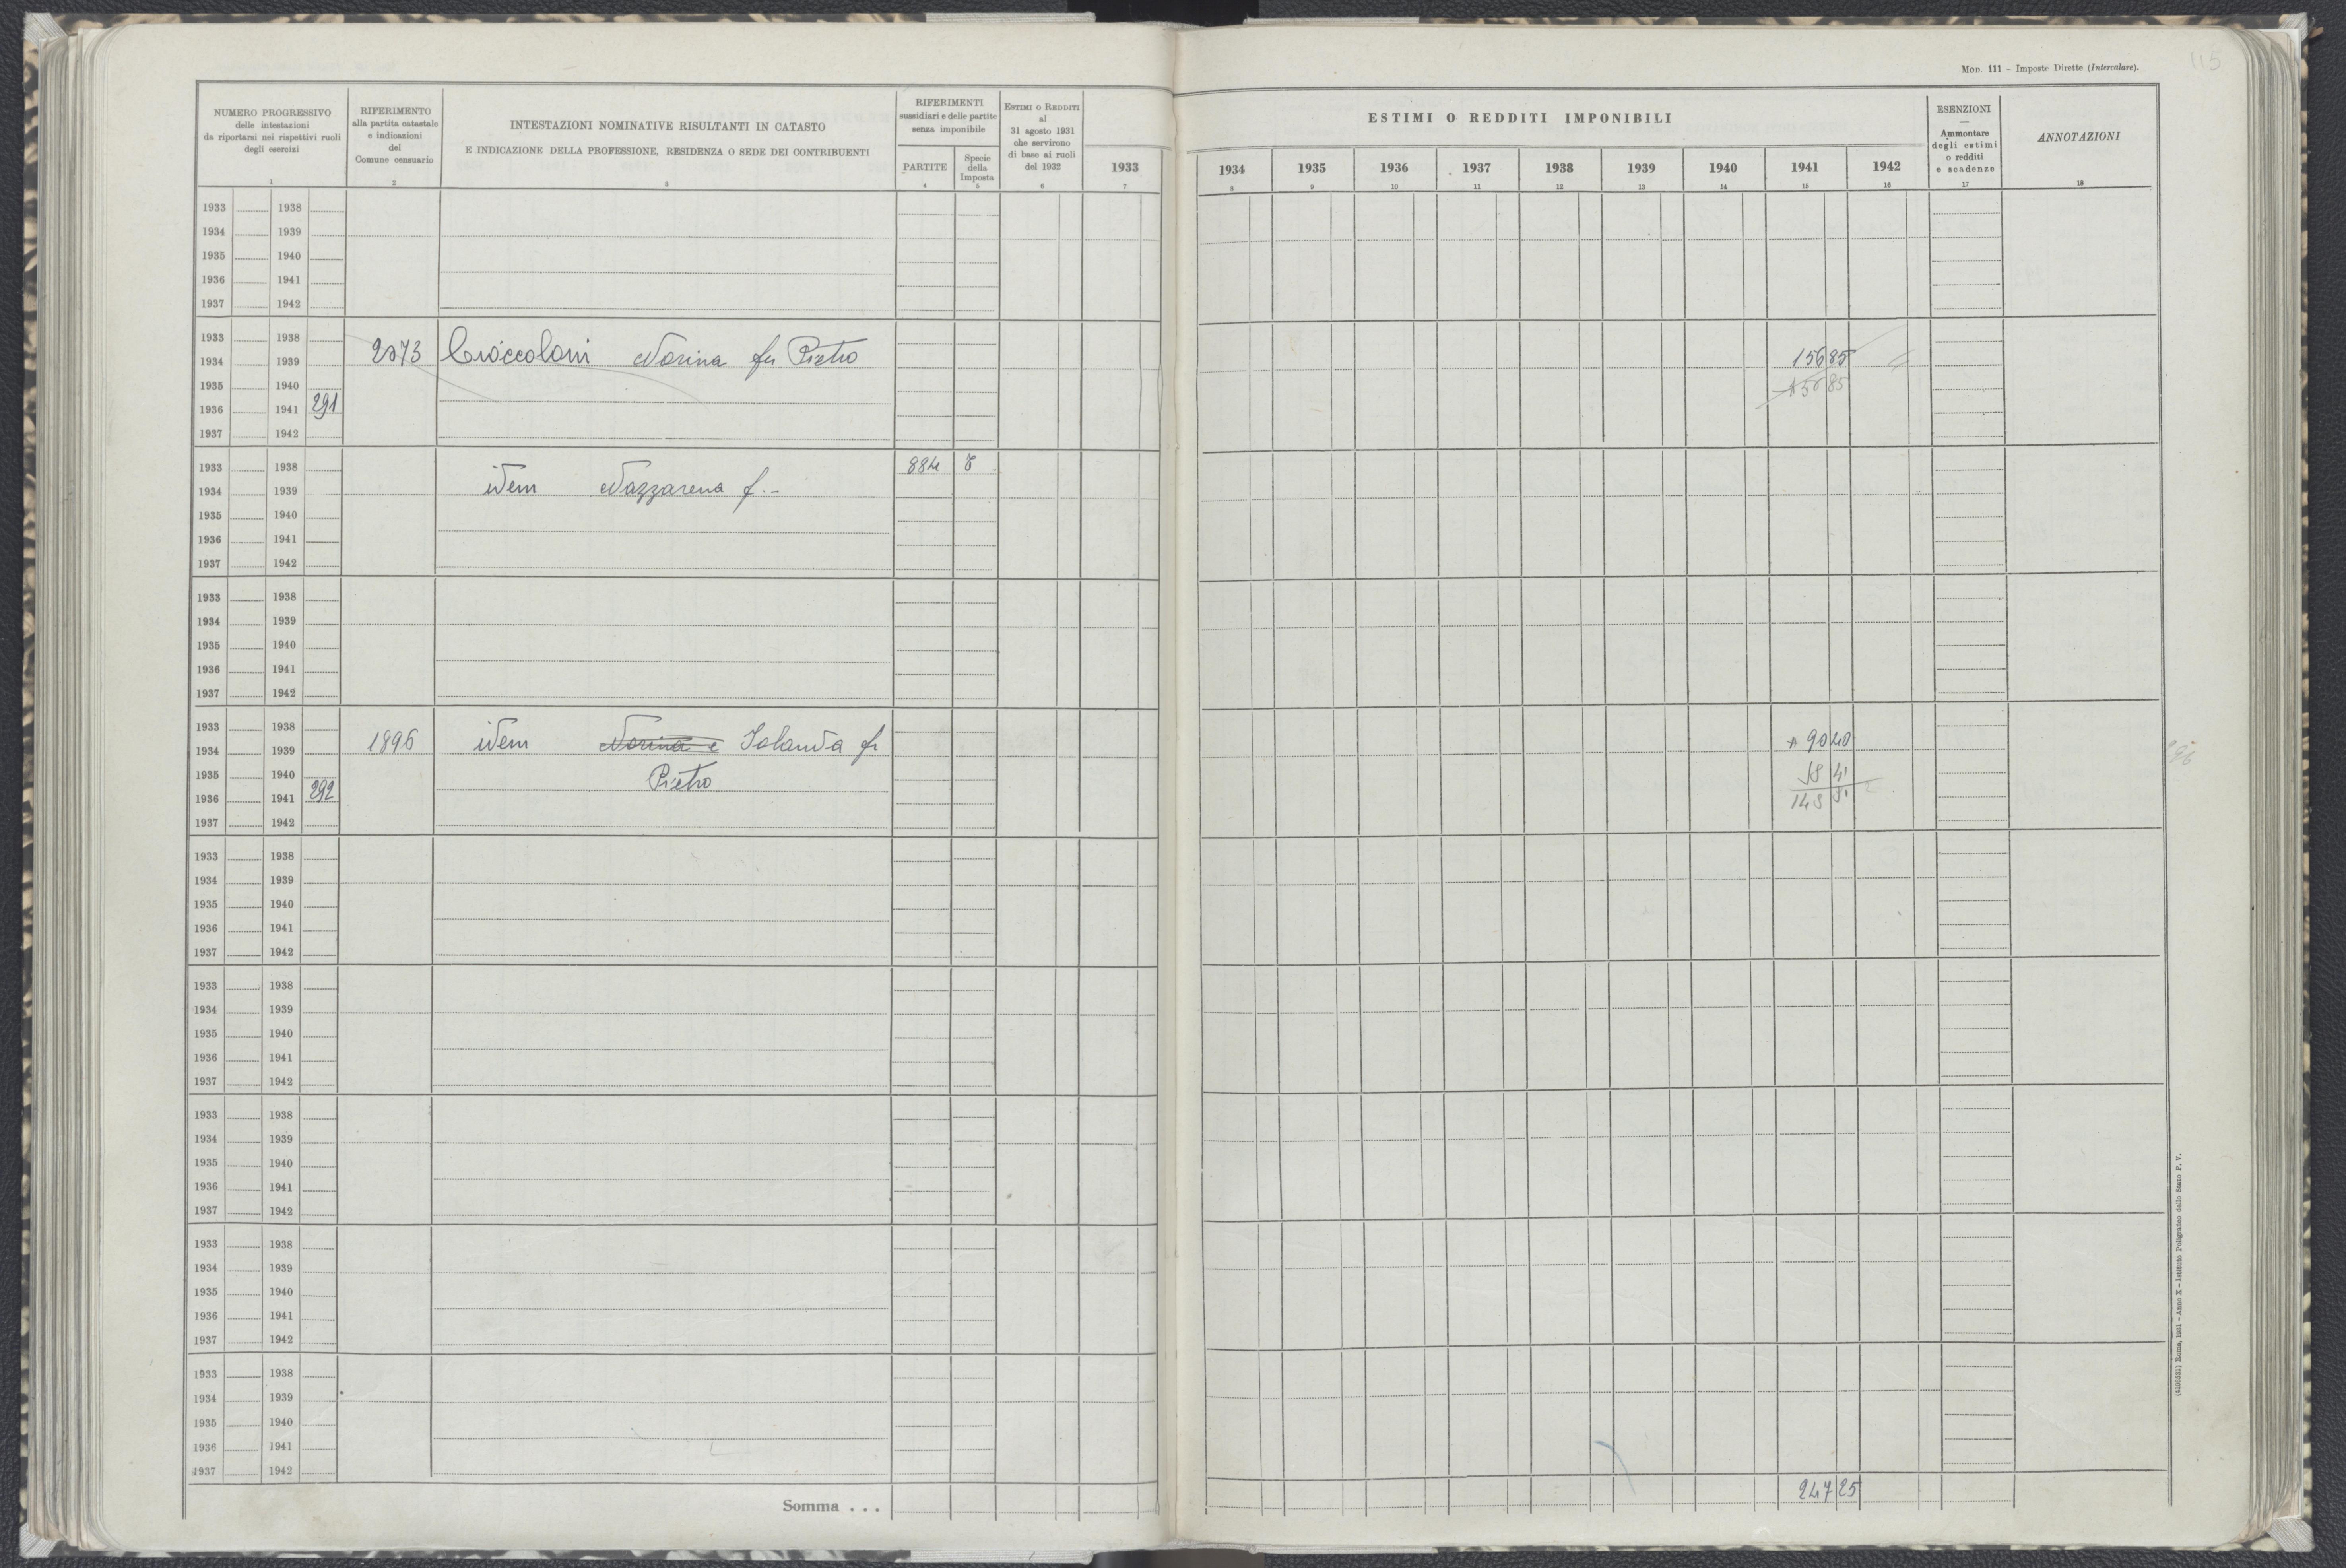 115
Mod. 111 – Imposte Dirette (Intercalare).
NUMERO PROGRESSIVO
delle intestazioni
da riportarsi nei rispettivi ruoli
degli esercizi
1
RIFERIMENTO
alla partita catastale
e indicazioni
del
Comune censuario
2
INTESTAZIONI NOMINATIVE RISULTANTI IN CATASTO
E INDICAZIONE DELLA PROFESSIONE, RESIDENZA O SEDE DEI CONTRIBUENTI
3
RIFERIMENTI
sussidiari e delle partite
senza imponibile
PARTITE
4
Specie
della
Imposta
5
ESTIMI O REDDITI
al
31 agosto 1931
che servirono
di base ai ruoli
del 1932
6
1933
7
ESTIMI O REDDITI IMPONIBILI
1934 1935 1936 1937 1938 1939 1940 1941 1942
8 9 10 11 12 13 14 15 16
ESENZIONI
—
Ammontare
degli estimi
o redditi
e scadenze
17
ANNOTAZIONI
18
1933 1938
1934 1939
1935 1940
1936 1941
1937 1942
1933 1938
1934 1939 2073 Cioccoloni Norina fu Pietro 156 85
1935 1940 156 85
1936 1941 291
1937 1942
1933 1938 884
1934 1939 idem Nazzarena f. –
1935 1940
1936 1941
1937 1942
1933 1938
1934 1939
1935 1940
1936 1941
1937 1942
1933 1938
1934 1939 1896 idem Norina e Iolanda fu 90 40
1935 1940 Pietro 58 41
1936 1941 292
1937 1942
1933 1938
1934 1939
1935 1940
1936 1941
1937 1942
1933 1938
1934 1939
1935 1940
1936 1941
1937 1942
1933 1938
1934 1939
1935 1940
1936 1941
1937 1942
1933 1938
1934 1939
1935 1940
1936 1941
1937 1942
1933 1938
1934 1939
1935 1940
1936 1941
1937 1942
Somma . . . 247 25
Roma, 1931 – Anno X – Istituto Poligrafico dello Stato P. V.